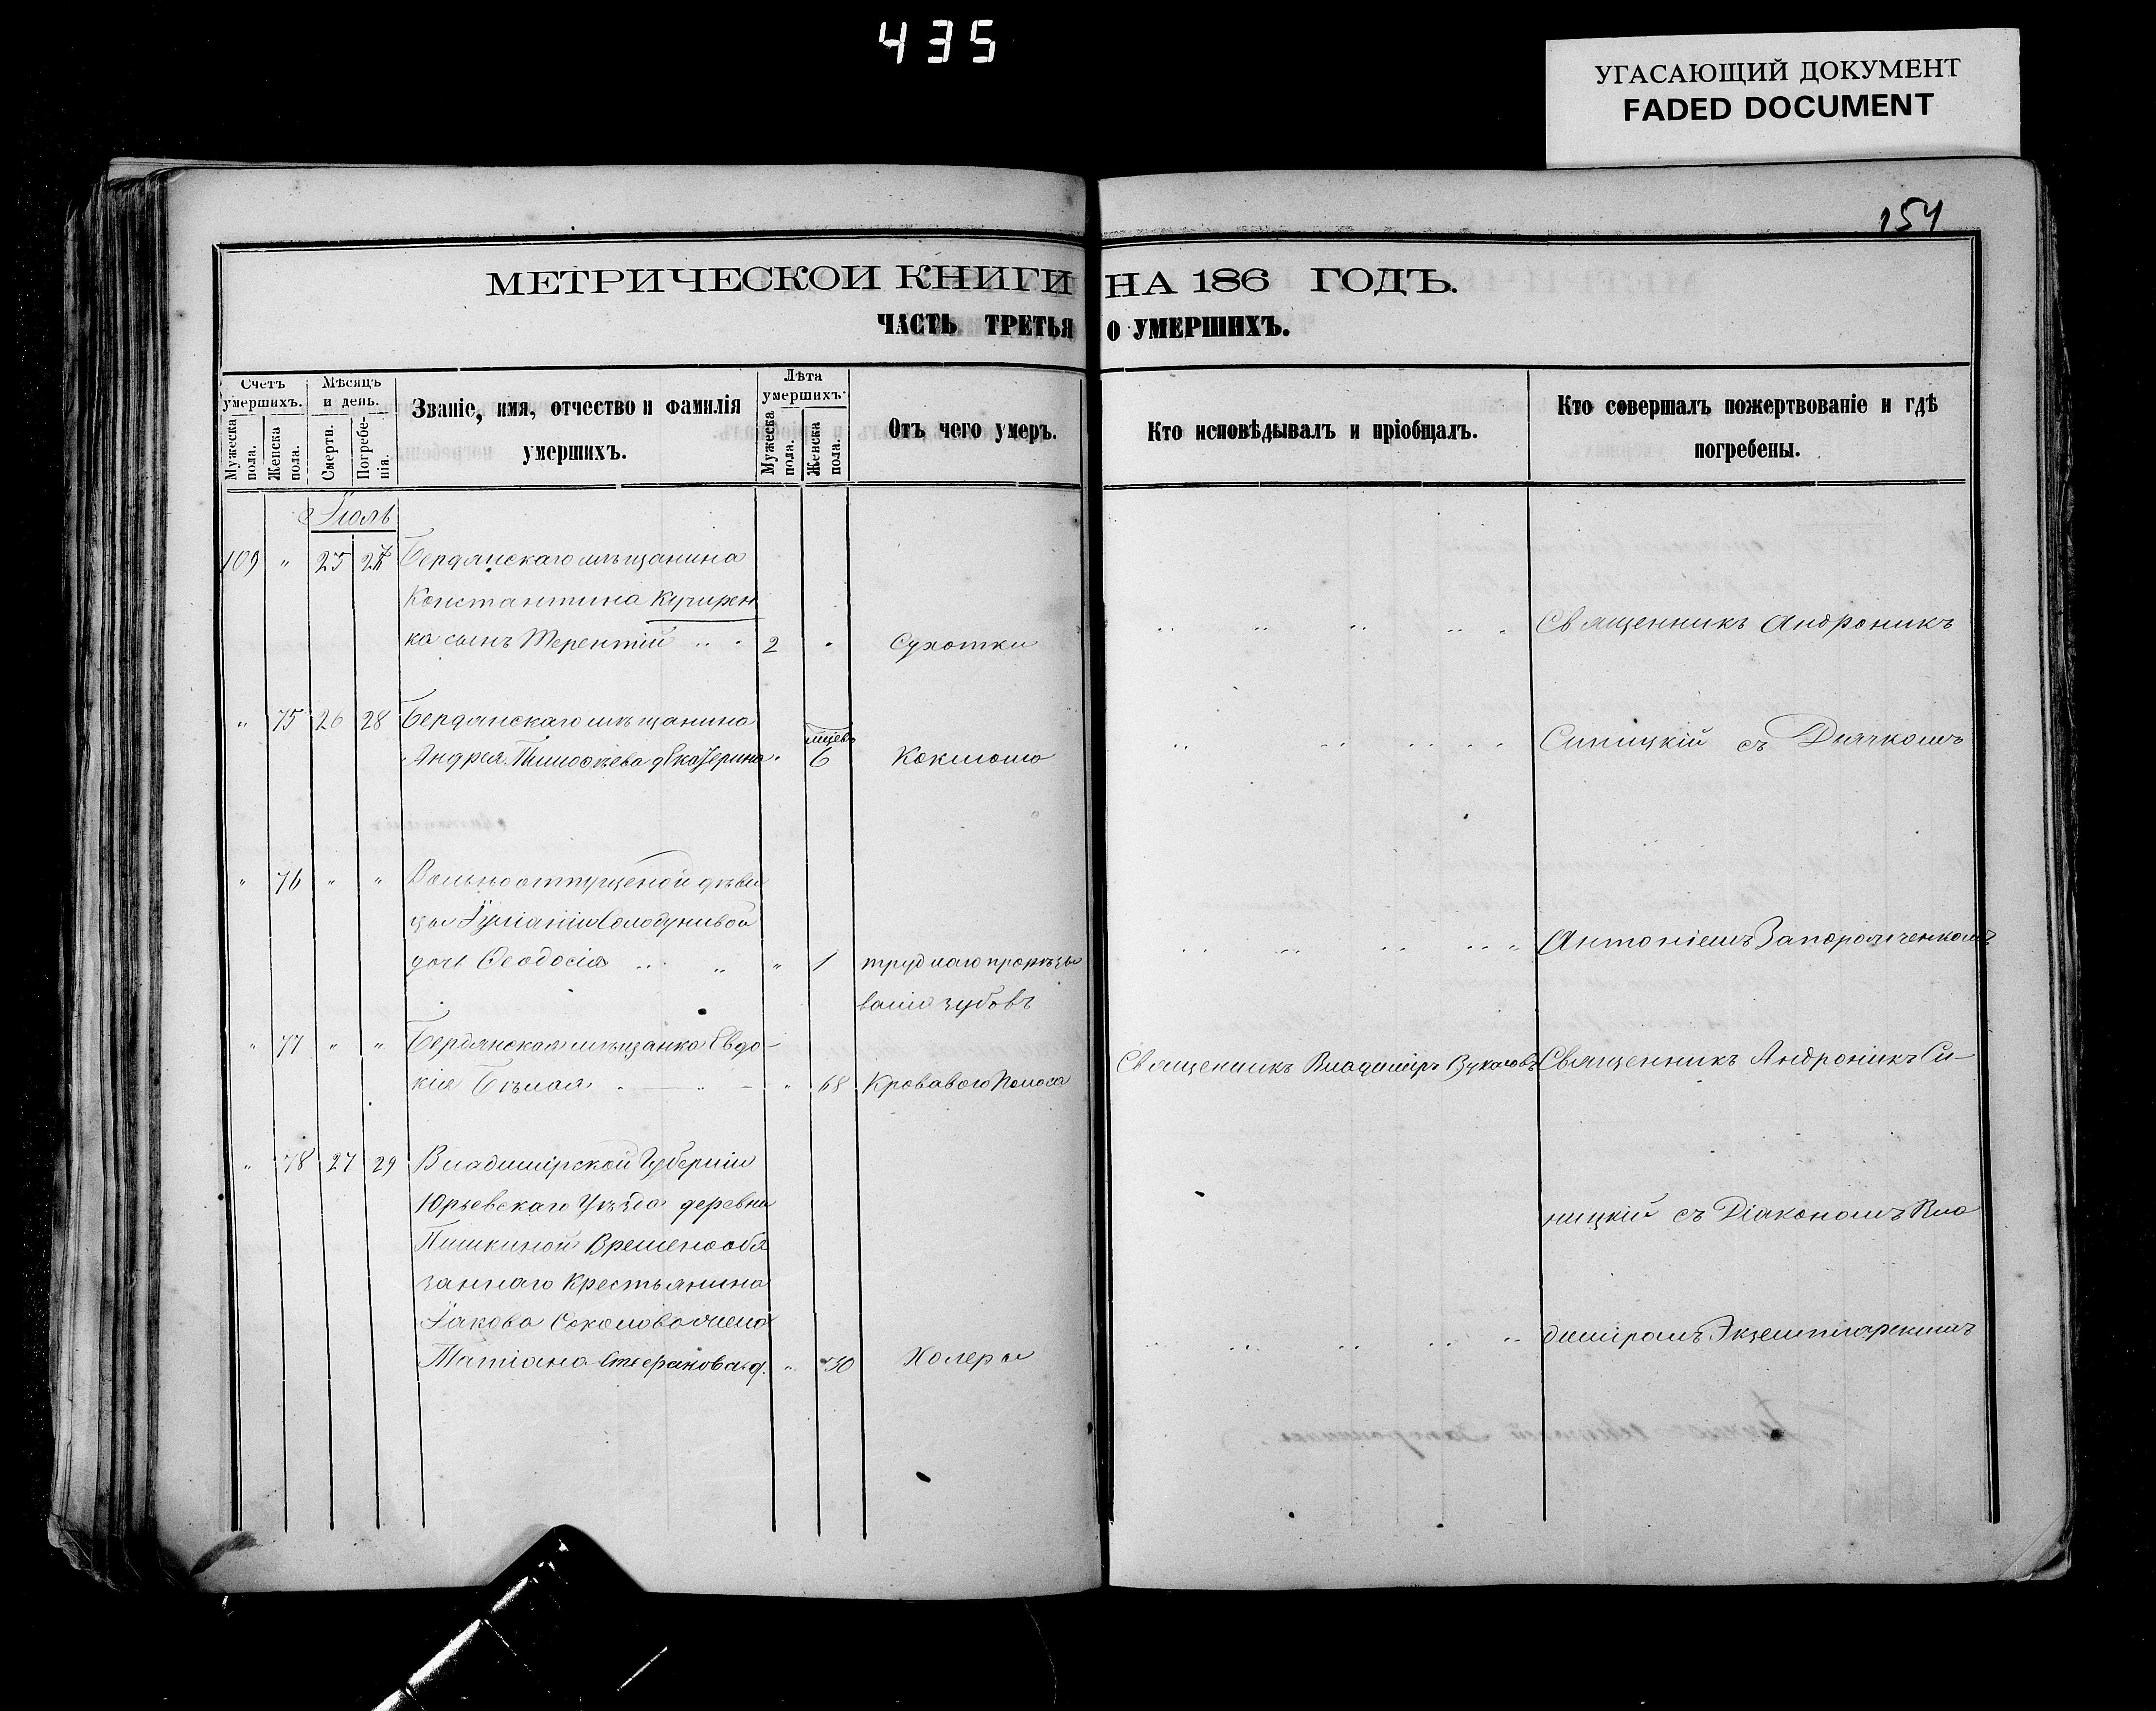 435
УГАСАЮЩИЙ ДОКУМЕНТ
FADED DOCUMENT
154
МЕТРИЧЕСКОЙ КНИГИ НА 186 ГОДЪ.
ЧАСТЬ ТРЕТЬЯ О УМЕРШИХЪ.
Счетъ умершихъ.
Мужеска пола.
Женска пола.
Мѣсяцъ и день.
Смерти.
Погребенія.
Званіе, имя, отчество и фамилія
умершихъ.
Лѣта умершихъ.
Мужеска пола.
Женска пола.
Отъ чего умеръ.
Кто исповѣдывалъ и пріобщалъ.
Кто совершалъ пожертвованіе и гдѣ
погребены.
Іюль
109 " 25 27 Бердянскаго мѣщанина
Константина Кучирен
ка сынъ Терентій 2 " Сухотки
Священникъ Андроникъ
" 75 26 28 Бердянскаго мѣщанина
Андрея Тимофѣева д Екатерина " мцев 6 Коклюша
Синицкій съ Дьячкомъ
" 76 " " Вольноотпущеной дѣви
цы Іуліаніи
дочь Феодосія " 1 труднаго прорѣзы
ванія зубовъ
Антоніемъ Запорожченкомъ
" 77 " " Бердянская мѣщанка Евдо
кія Бѣлая " 68 Кроваваго Поноса
Священникъ Владиміръ Священникъ Андроникъ Си
" 78 27 29 Владимірской Губерніи
Юрьевскаго Уѣзда деревни
Пишкиной Временообя
заннаго Крестьянина
Іакова Соколова жена
Татіана Стефанова д. " 30 Холеры
ницкій съ Діакономъ Вла
диміромъ Экземплярскимъ